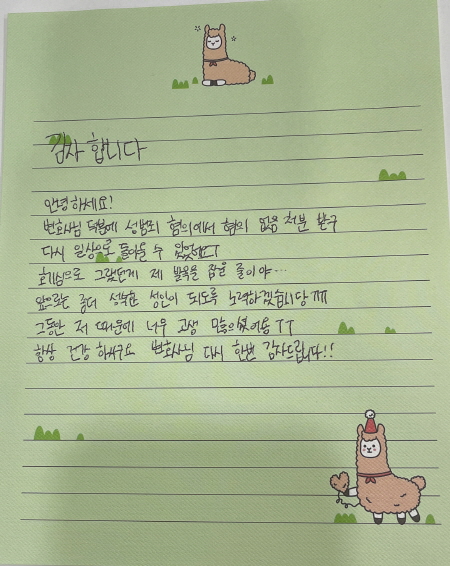 감사 합니다
안녕하세요!
변호사님 덕분에 성범죄 혐의에서 혐의 없음 처분 받구
다시 일상으로 돌아올 수 있었어요ㅠ
호기심으로 그랬던게 제 발목을 잡을 줄이야...
앞으로는 좀더 성숙한 성인이 되도록 노력하겠습니당 ㅠㅠ
그동안 저 때문에 너무 고생 많으셨어용 ㅜㅜ
항상 건강 하시구요 변호사님 다시 한번 감사드립니다!!